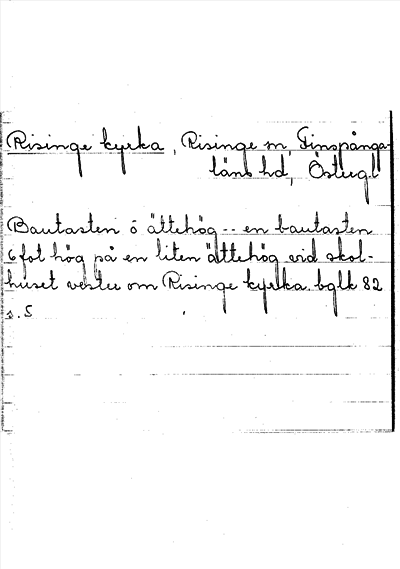 Risinge kyrka, Risinge sn, Finspånga-
läns hd, Östergl
Bautasten ö ättehög -- en bautasten
6 fot hög på en liten ättehög vid skol-
huset vester om Risinge kyrka. bglk 82
s. 5